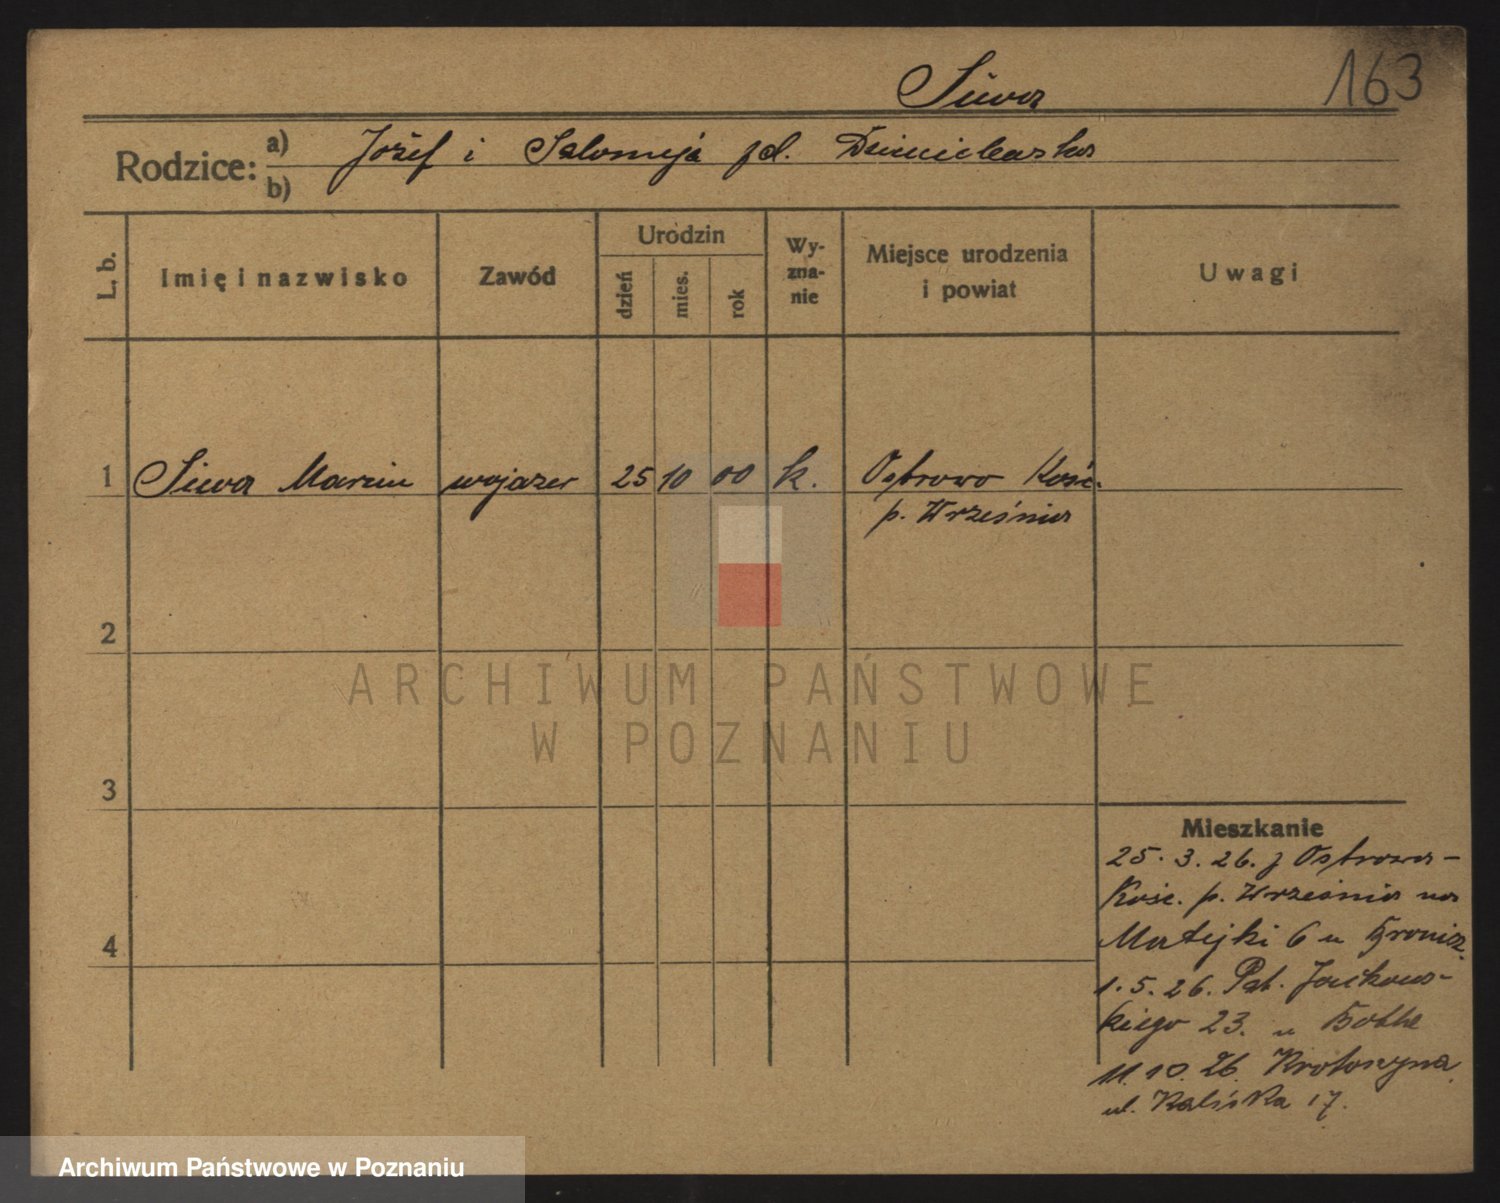 163
Siwa
Rodzice:
a) Józef i Salomeja zd.
b)
L. b.
Imię i nazwisko
Zawód
Urodzin
dzień
mies.
rok
Wy-
zna-
nie
Miejsce urodzenia
i powiat
Uwagi
1 Siwa Marcin wojażer 25 10 00 k. Ostrowo Kość.
p. Września
2
3
4
Mieszkanie
25.3.26. z Ostrowa-
Kość. p. Września na
Matejki 6 u
1.5.26. Pat. Jackows-
kiego 23. u Bothe
11.10.26. Krotoszyna
ul. Kaliska 17.
ARCHIWUM PAŃSTWOWE
W POZNANIU
Archiwum Państwowe w Poznaniu